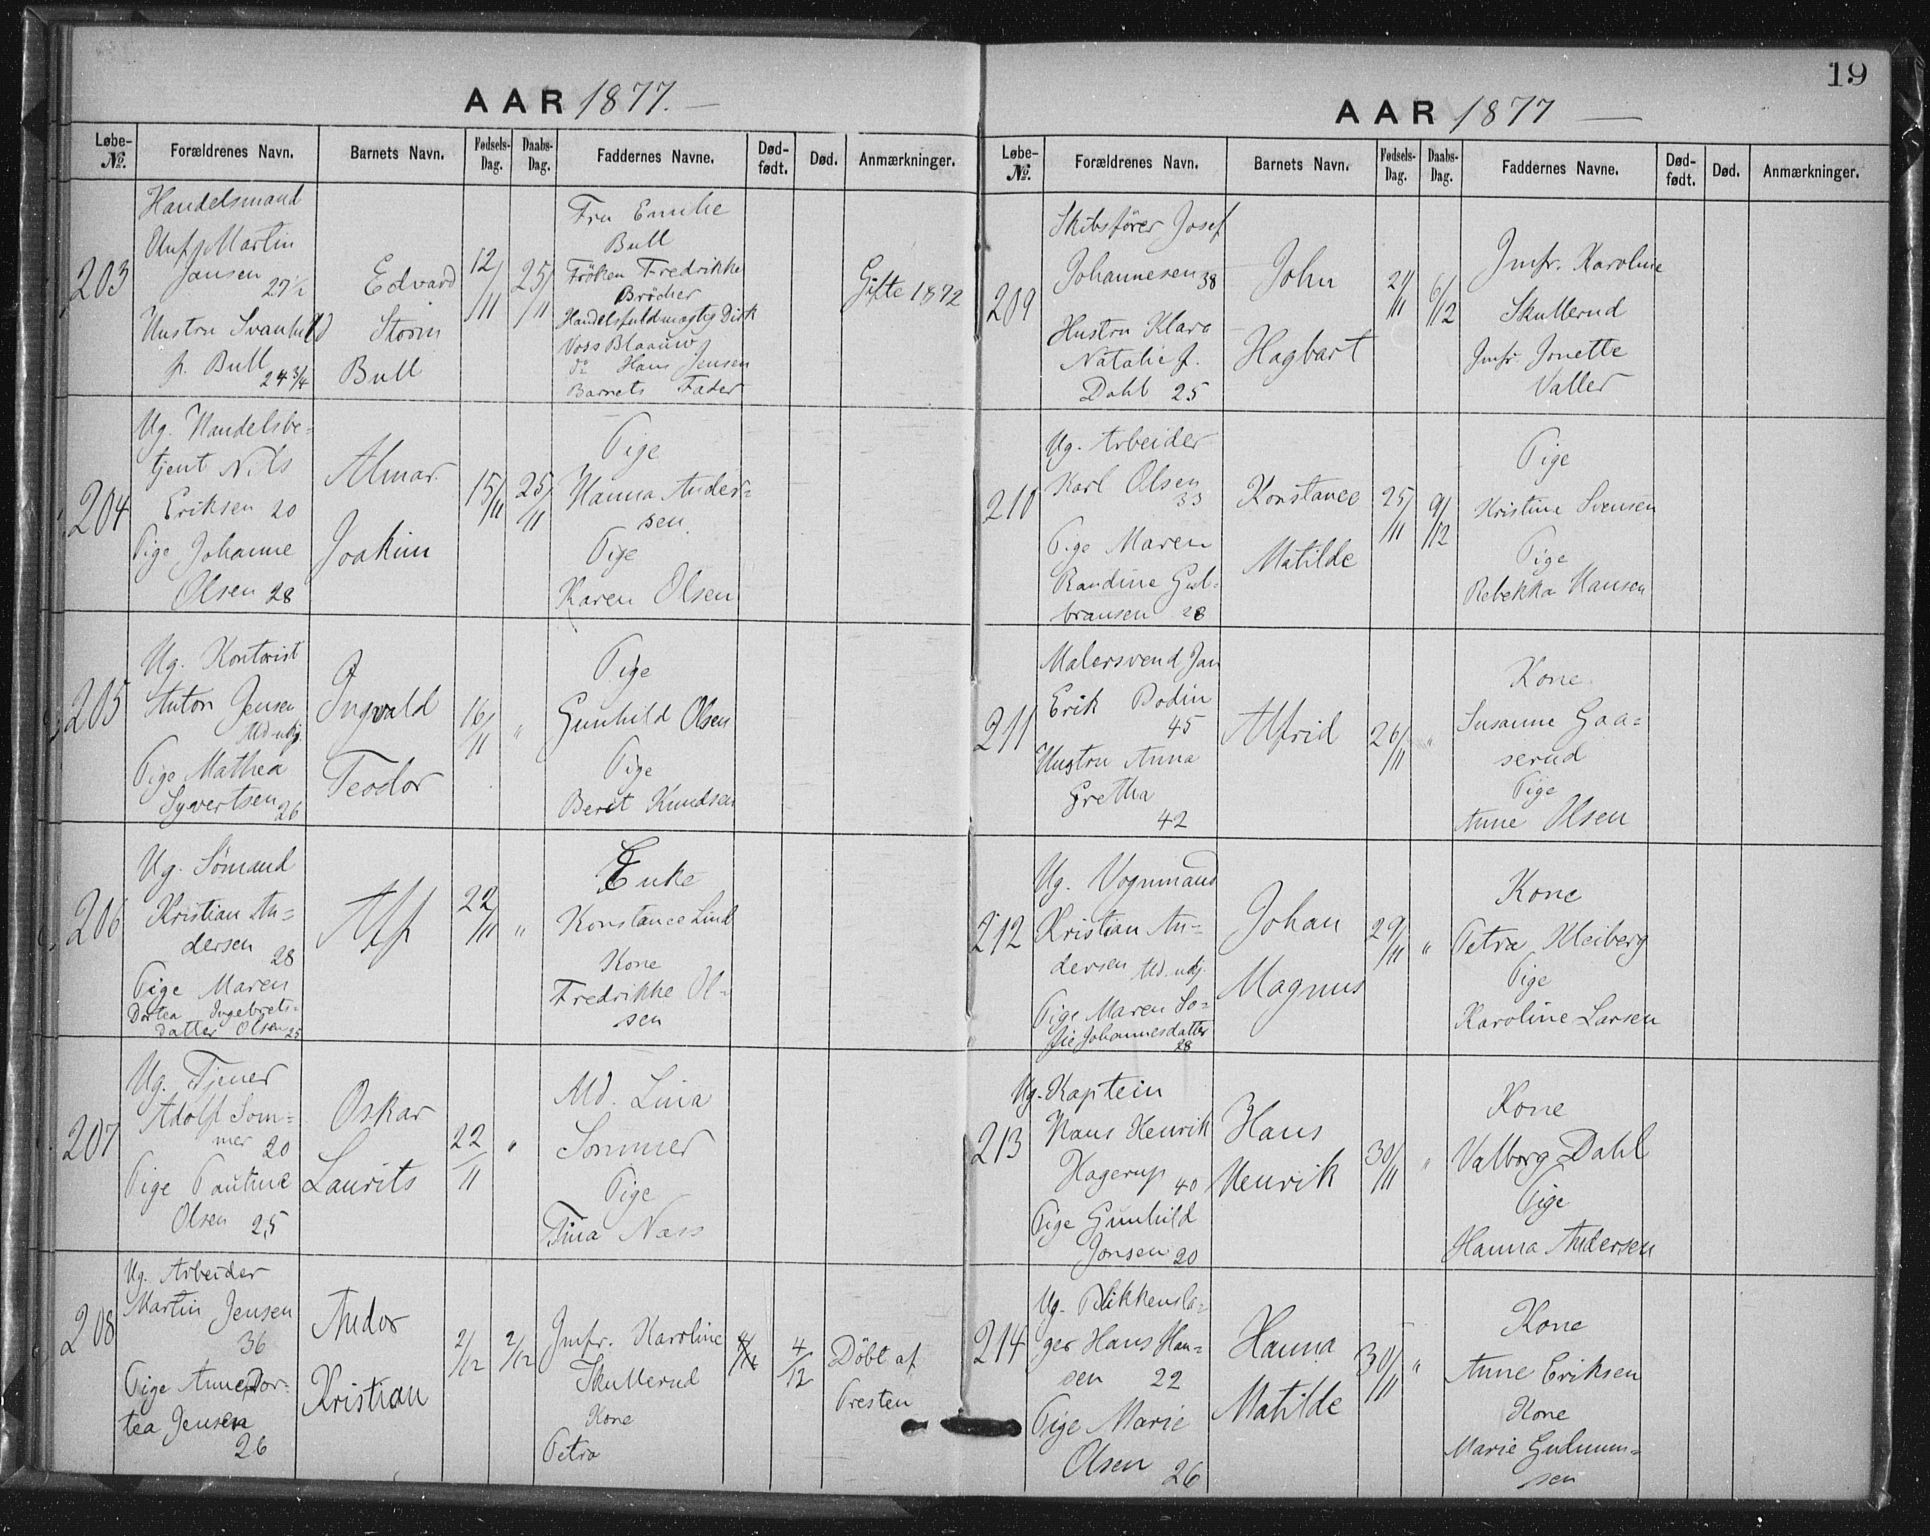 19
AAR 1877. —
Løbe-№.
Forældrenes Navn.
Barnets Navn.
Fødsels-Dag.
Daabs-Dag.
Faddernes Navne.
Død-født.
Død.
Anmærkninger.
203
Handelsmand
Martin
Jansen
27½
Hustru Svanhild
f. Bull
24¾
Edvard
Storm
Bull
12/11
25/11
Fru Emilie
Bull
Frøken Fredrikke
Brøcher
Handelsfuldmægtig Dirk
Voss Blaauw
do Hans Jensen
Barnets Fader
Gifte 1872
204
Ug. Handelsbe=
tjent Nils
Eriksen 20
Pige Johanne
Olsen 28
Almar
Joakim
15/11
25/11
Pige
Hanna Ander=
sen
Pige
Karen Olsen
205
Ug. Kontorist
Anton Jensen
Pige Mathea
Syvertsen 26
Ingvald
Teodor
16/11
"
Pige
Gunhild Olsen
Pige
Beret Knudsen
206
Ug. Sømand
Kristian An=
dersen
28
Pige Maren
Dortea Ingebrets=
datter Olsen 25
Alf
22/11
"
Enke
Konstance Lind
Kone
Fredrikke Ol=
sen
207
Ug. Tjener
Adolf Som=
mer 20
Pige Pauline
Olsen 25
Oskar
Laurits
22/11
"
Md. Lina
Sommer
Pige
Tina Næss
208
Ug. Arbeider
Martin Jensen
36
Pige Anne Dor=
tea Jensen
26
Andor
Kristian
2/12
2/12
Jmfr. Karoline
Skullerud
Kone
Petra
4/12
Døbt af
Presten
AAR 1877 —
Løbe-№.
Forældrenes Navn.
Barnets Navn.
Fødsels-Dag.
Daabs-Dag.
Faddernes Navne.
Død-født.
Død.
Anmærkninger.
209
Skibsfører Josef
Johannesen 38
Hustru Klara
Natalie f.
Dahl 25
John
Hagbart
21/11
6/12
Jmfr. Karoline
Skullerud
Jmfr Jonette
Valler
210
Ug. Arbeider
Karl Olsen
33
Pige Maren
Randine Gul=
bransen 28
Konstance
Matilde
25/11
9/12
Pige
Kristine Svensen
Pige
Rebekka Hansen
211
Malersvend Jan
Erik Bodin
45
Hustru Anna
Gretha
42
Alfrid
26/11
"
Kone
Susanne Gaa=
serud
Pige
Anne Olsen
212
Ug. Vognmand
Kristian An=
dersen
Pige Maren So=
fie Johannesdatter
28
Johan
Magnus
29/11
"
Kone
Petra Kleiberg
Pige
Karoline Larsen
213
Ug. Kaptein
Hans Henrik
Hagerup 40
Pige Gunhild
Jonsen 20
Hans
Henrik
30/11
"
Kone
Valborg Dahl
Pige
Hanna Andersen
214
Ug. Blikkensla=
ger Hans Han=
sen 22
Pige Marie
Olsen 26
Hanna
Matilde
30/11
"
Kone
Anne Eriksen
Kone
Marie Gulmun=
sen